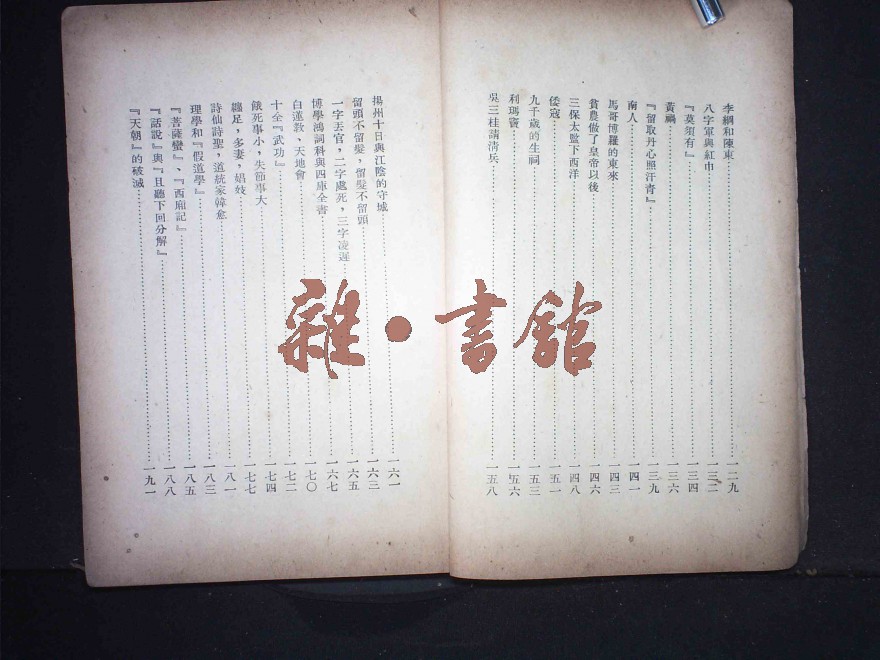 李綱和陳東……一二九
八字軍與紅巾……一三二
『莫須有』……一三四
黃禍……一三六
『留取丹心照汗青』……一三九
南人……一四一
馬哥博羅的東來……一四三
貧農做了皇帝以後……一四六
三保太監下西洋……一四八
倭寇……一五一
九千歲的生祠……一五三
利瑪竇……一五六
吳三桂請清兵……一五八
揚州十日與江陰的守城……一六一
留頭不留髮，留髮不留頭……一六三
一字丟官，二字處死，三字凌遲……一六五
博學鴻詞科與四庫全書……一六七
白蓮教、天地會……一七〇
十全『武功』……一七二
餓死事小，失節事大……一七四
纏足，多妻，娼妓……一七七
詩仙詩聖，道統家韓愈……一八一
理學和『假道學』……一八三
『菩薩蠻』、『西廂記』……一八五
『話說』與『且聽下回分解』……一八八
『天朝』的破滅……一九一
雜·書館